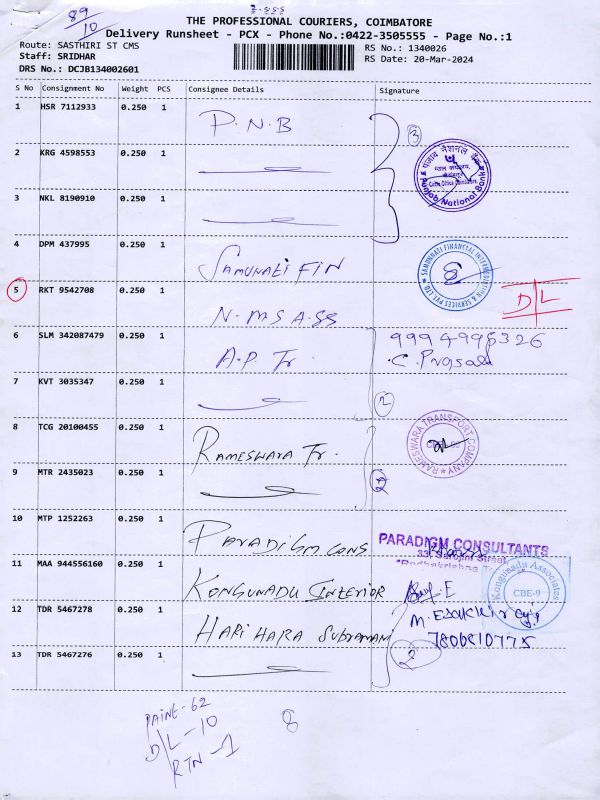 89/10
THE PROFESSIONAL COURIERS, COIMBATORE
Delivery Runsheet - PCX - Phone No.:0422-3505555 - Page No.:1
Route: SASTHIRI ST CMS
Staff: SRIDHAR
DRS No.: DCJB134002601
RS No.: 1340026
RS Date: 20-Mar-2024
S No Consignment No Weight PCS Consignee Details Signature
1 HSR 7112933 0.250 1 P.N.B
3
2 KRG 4598553 0.250 1
पंजाब नैशनल बैंक
Punjab National Bank
3 NKL 8190910 0.250 1
4 DPM 437995 0.250 1 SAMUNATI FIN
5 RKT 9542708 0.250 1 N.M.S ASS
D/L
6 SLM 342087479 0.250 1 A.P. Tr. 9994998326
7 KVT 3035347 0.250 1
2
8 TCG 20100455 0.250 1 RAMESWARA Tr.
RAMESWARA TRANSPORT COMPANY
9 MTR 2435023 0.250 1
10 MTP 1252263 0.250 1 PARADIGM CONS
PARADIGM CONSULTANTS
33, Sarojini Street
11 MAA 944556160 0.250 1 KONGUNADU INTERIOR
Kongunadu Associates
CBE-9
12 TDR 5467278 0.250 1 HARI HARA SUBRAMANI
7806810775
2
13 TDR 5467276 0.250 1
8
D/L - 10
RTN - 1